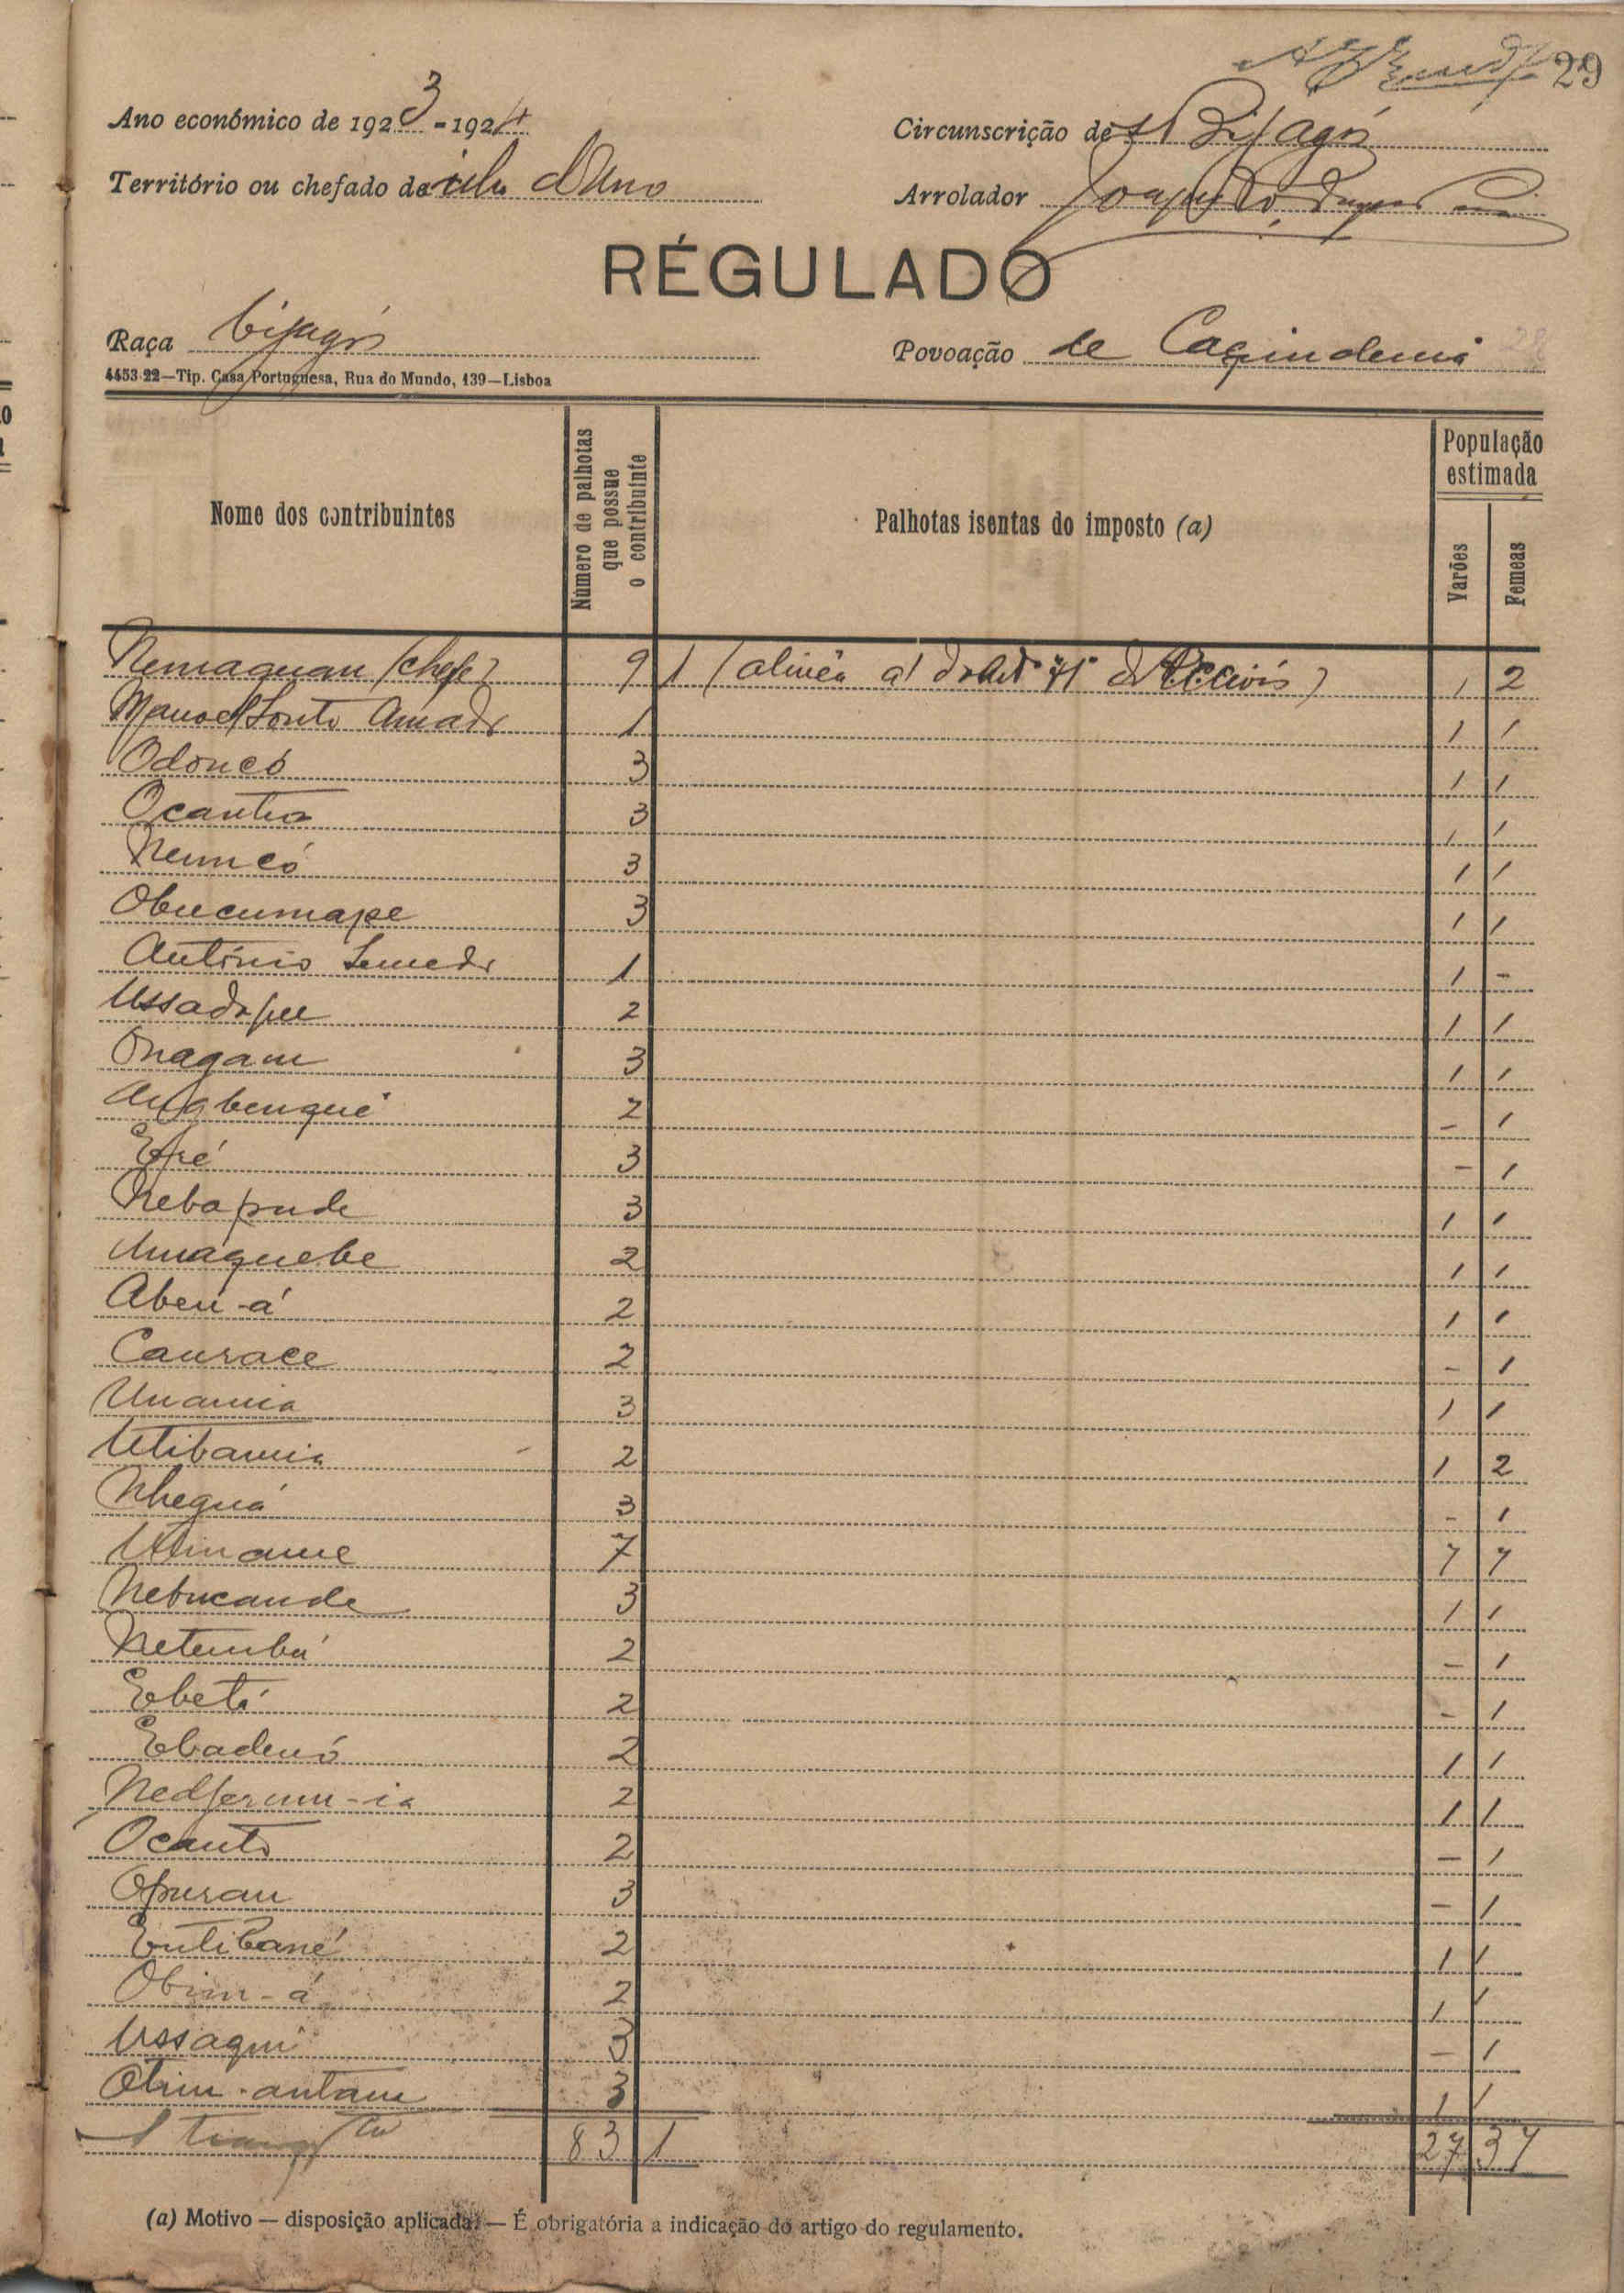 29
Ano económico de 1923-1924
Circunscrição de Bijagós
Território ou chefado da ilha d'Uno
Arrolador
RÉGULADO
Raça bijagós
Povoação de
4453-22—Tip. Casa Portuguesa, Rua do Mundo, 139—Lisboa
Nome dos contribuintes
Número de palhotas que possue o contribuinte
Palhotas isentas do imposto (a)
População estimada
Varões
Femeas
Nemaguan (chefe) 9 1 (alinêa a) do Artº 41º 1 2
Manoel Souto Amado 1 1 1
Odoncó 3 1 1
Ocanto 3 1 1
Neuncó 3 1 1
Obucumape 3 1 1
António Semedo 1 1 -
Ussadopu 2 1 1
Onagam 3 1 1
2 - 1
3 - 1
Nebapude 3 1 1
Umaquebe 2 1 1
Abeu-á 2 1 1
Caurace 2 - 1
Unamia 3 1 1
Utibamia 2 1 2
Nheguá 3 - 1
7 7 7
Nebucande 3 1 1
Netembá 2 - 1
Ebetó 2 - 1
Ebadenó 2 1 1
2 1 1
Ocanto 2 - 1
Opuran 3 - 1
2 1 1
Obim-á 2 1 1
Ussaqui 3 - 1
Otim-antam 3 1 1
83 1 27 37
(a) Motivo — disposição aplicada. — É obrigatória a indicação do artigo do regulamento.